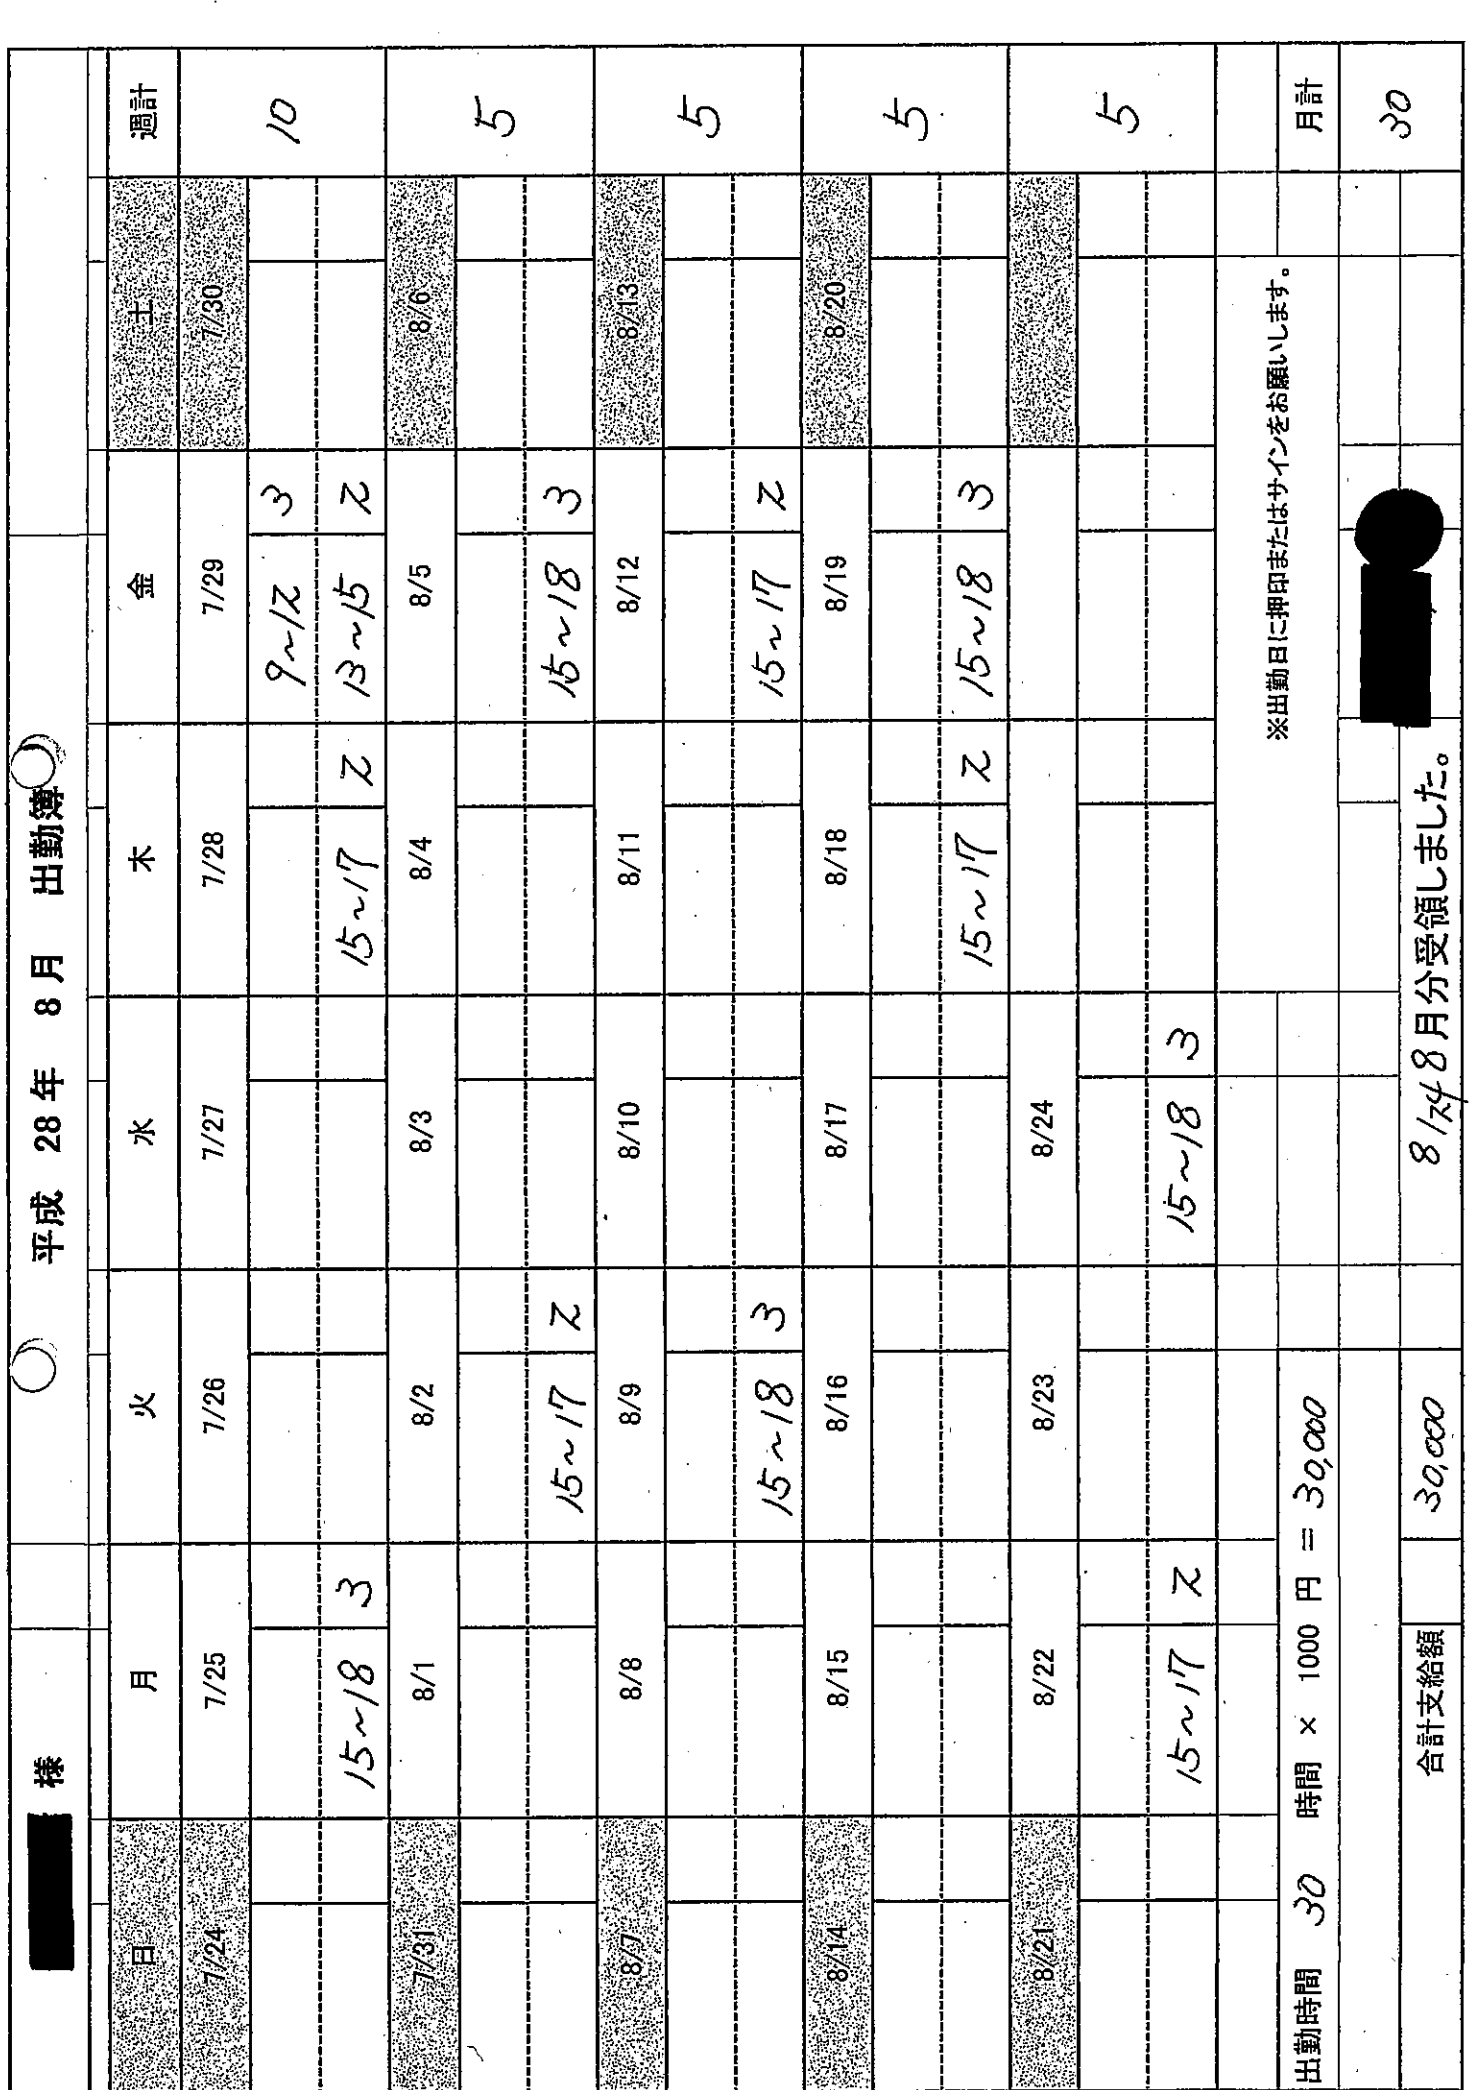 様 平成 28 年 8 月 出勤簿
日 月 火 水 木 金 土 週計
7/24 7/25 7/26 7/27 7/28 7/29 7/30
9~12 3
15~18 3 15~17 2 13~15 2
10
7/31 8/1 8/2 8/3 8/4 8/5 8/6
15~17 2 15~18 3
5
8/7 8/8 8/9 8/10 8/11 8/12 8/13
15~18 3 15~17 2
5
8/14 8/15 8/16 8/17 8/18 8/19 8/20
15~17 2 15~18 3
5
8/21 8/22 8/23 8/24
15~17 2 15~18 3
5
※出勤日に押印またはサインをお願いします。
出勤時間 30 時間 × 1000 円 = 30,000 月計
30
合計支給額 30,000 8/24 8月分受領しました。